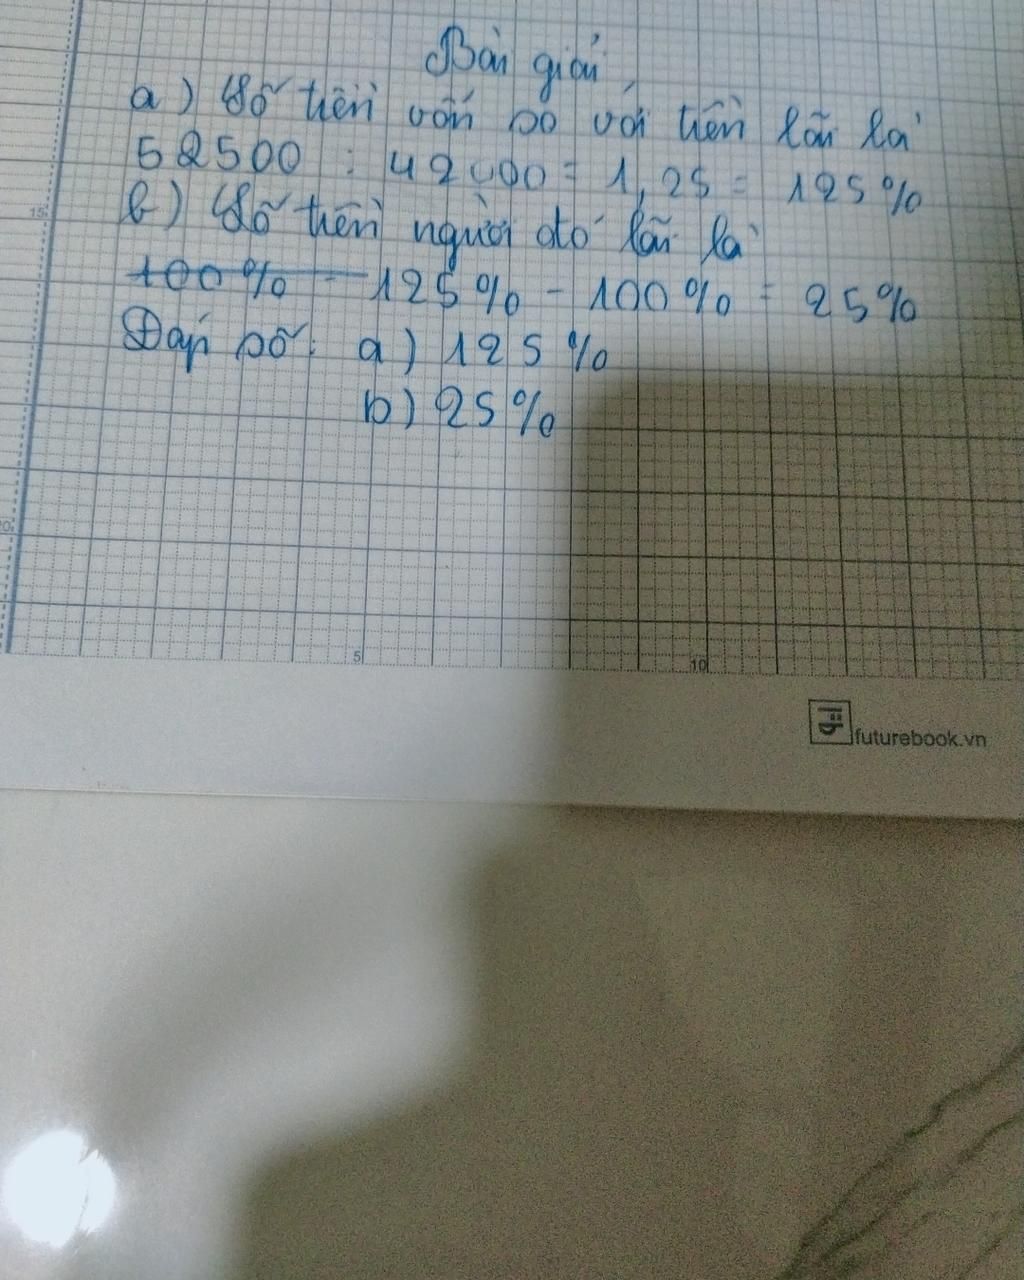 Bài giải
a) Số tiền vốn so với tiền lãi là
52500 : 42000 = 1,25 = 125%
b) Số tiền người đó lãi là
100% - 125% - 100% = 25%
Đáp số: a) 125%
b) 25%
15
20
5
10
futurebook.vn